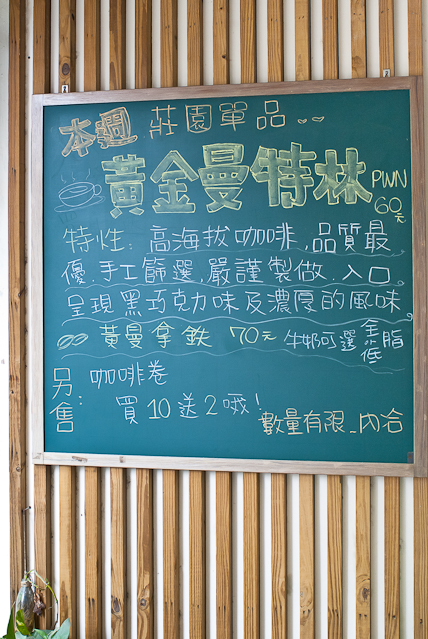 本週 莊園單品
黃金曼特林 PWN
60元
特性:高海拔咖啡,品質最
優.手工篩選,嚴謹製做.入口
呈現黑巧克力味及濃厚的風味
黃曼拿鉄 70元 牛奶可選 全低脂
另售:咖啡卷
買10送2哦!
數量有限_內洽